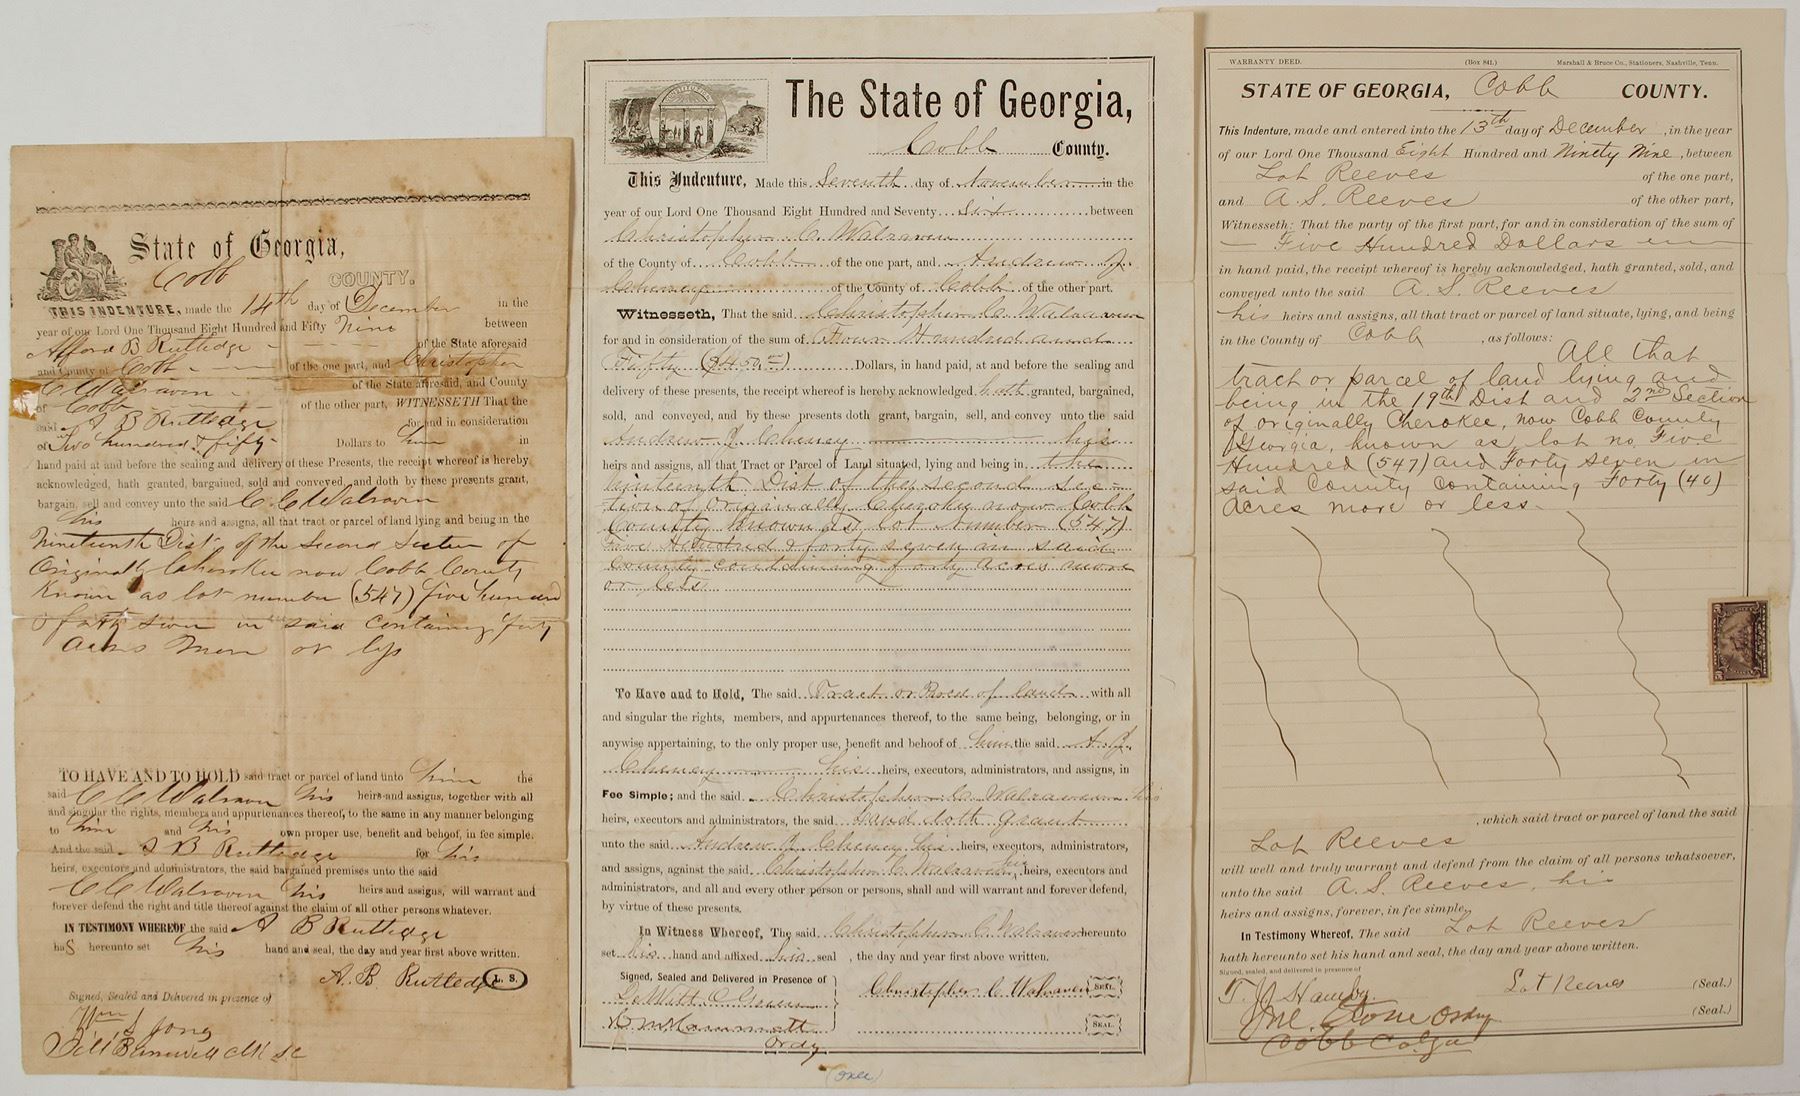 State of Georgia,
Cobb
COUNTY.
THIS INDENTURE, made the 14th day of December in the
year of our Lord One Thousand Eight Hundred and Fifty Nine between
Alford B Rutledge of the State aforesaid
and County of Cobb of the one part, and Christopher
C Walraven of the State aforesaid, and County
of Cobb of the other part, WITNESSETH That the
said A B Rutledge for and in consideration
of Two hundred & fifty Dollars to him in
hand paid at and before the sealing and delivery of these Presents, the receipt whereof is hereby
acknowledged, hath granted, bargained, sold and conveyed, and doth by these presents grant,
bargain, sell and convey unto the said C. C Walraven
his heirs and assigns, all that tract or parcel of land lying and being in the
Nineteenth Dist of the Second Section of
Originally Cherokee now Cobb County
Known as lot number (547) five hundred
& forty seven in said containing forty
acres more or less
TO HAVE AND TO HOLD said tract or parcel of land unto him the
said C C Walraven his heirs and assigns, together with all
and singular the rights, members and appurtenances thereof, to the same in any manner belonging
to him and his own proper use, benefit and behoof, in fee simple.
And the said A B Rutledge for his
heirs, executors and administrators, the said bargained premises unto the said
C C Walraven his heirs and assigns, will warrant and
forever defend the right and title thereof against the claim of all other persons whatever.
IN TESTIMONY WHEREOF the said A B Rutledge
haS hereunto set his hand and seal, the day and year first above written.
A. B. Rutledge L. S.
Signed, Sealed and Delivered in presence of
Wm J Jong
The State of Georgia,
Cobb County.
This Indenture, Made this Seventh day of November in the
year of our Lord One Thousand Eight Hundred and Seventy Six between
Christopher C. Walraven
of the County of Cobb of the one part, and Andrew J.
Cheney of the County of Cobb of the other part.
Witnesseth, That the said Christopher C. Walraven
for and in consideration of the sum of Four Hundred and
Fifty ($450.00) Dollars, in hand paid, at and before the sealing and
delivery of these presents, the receipt whereof is hereby acknowledged hath granted, bargained,
sold, and conveyed, and by these presents doth grant, bargain, sell, and convey unto the said
Andrew J Cheney his
heirs and assigns, all that Tract or Parcel of Land situated, lying and being in the
Ninteenth Dist of the Second Sec-
tion of Originally Cherokee now Cobb
County Known as lot Number (547)
five Hundred & forty seven in said
County containing forty acres more
or less
To Have and to Hold, The said Tract or Parcel of land with all
and singular the rights, members, and appurtenances thereof, to the same being, belonging, or in
anywise appertaining, to the only proper use, benefit and behoof of him the said A. J.
Cheney his heirs, executors, administrators, and assigns, in
Fee Simple; and the said Christopher C. Walraven his
heirs, executors and administrators, the said Land doth grant
unto the said Andrew J. Cheney his heirs, executors, administrators,
and assigns, against the said Christopher C. Walraven his heirs, executors and
administrators, and all and every other person or persons, shall and will warrant and forever defend,
by virtue of these presents.
In Witness Whereof, The said Christopher C. Walraven hereunto
set his hand and affixed his seal , the day and year first above written.
Signed, Sealed and Delivered in Presence of
Christopher C Walraven SEAL.
SEAL.
Ordy
(over)
WARRANTY DEED. (Box 841.) Marshall & Bruce Co., Stationers, Nashville, Tenn.
STATE OF GEORGIA, Cobb COUNTY.
This Indenture, made and entered into the 13th day of December , in the year
of our Lord One Thousand Eight Hundred and Ninety Nine , between
Lot Reeves of the one part,
and A. S. Reeves of the other part,
Witnesseth: That the party of the first part, for and in consideration of the sum of
Five Hundred Dollars
in hand paid, the receipt whereof is hereby acknowledged, hath granted, sold, and
conveyed unto the said A. S. Reeves
his heirs and assigns, all that tract or parcel of land situate, lying, and being
in the County of Cobb , as follows:
All that
tract or parcel of land lying and
being in the 19th Dist and 2nd Section
of originally Cherokee, now Cobb County
Georgia, known as lot no, Five
Hundred (547) and Forty seven in
said County containing Forty (40)
acres more or less.
, which said tract or parcel of land the said
Lot Reeves
will well and truly warrant and defend from the claim of all persons whatsoever,
unto the said A. S. Reeves, his
heirs and assigns, forever, in fee simple.
In Testimony Whereof, The said Lot Reeves
hath hereunto set his hand and seal, the day and year above written.
Signed, sealed, and delivered in presence of
Lot Reeves (Seal.)
T. J. Hamby.
(Seal.)
Jno. Stone Ordy
Cobb Co. Ga